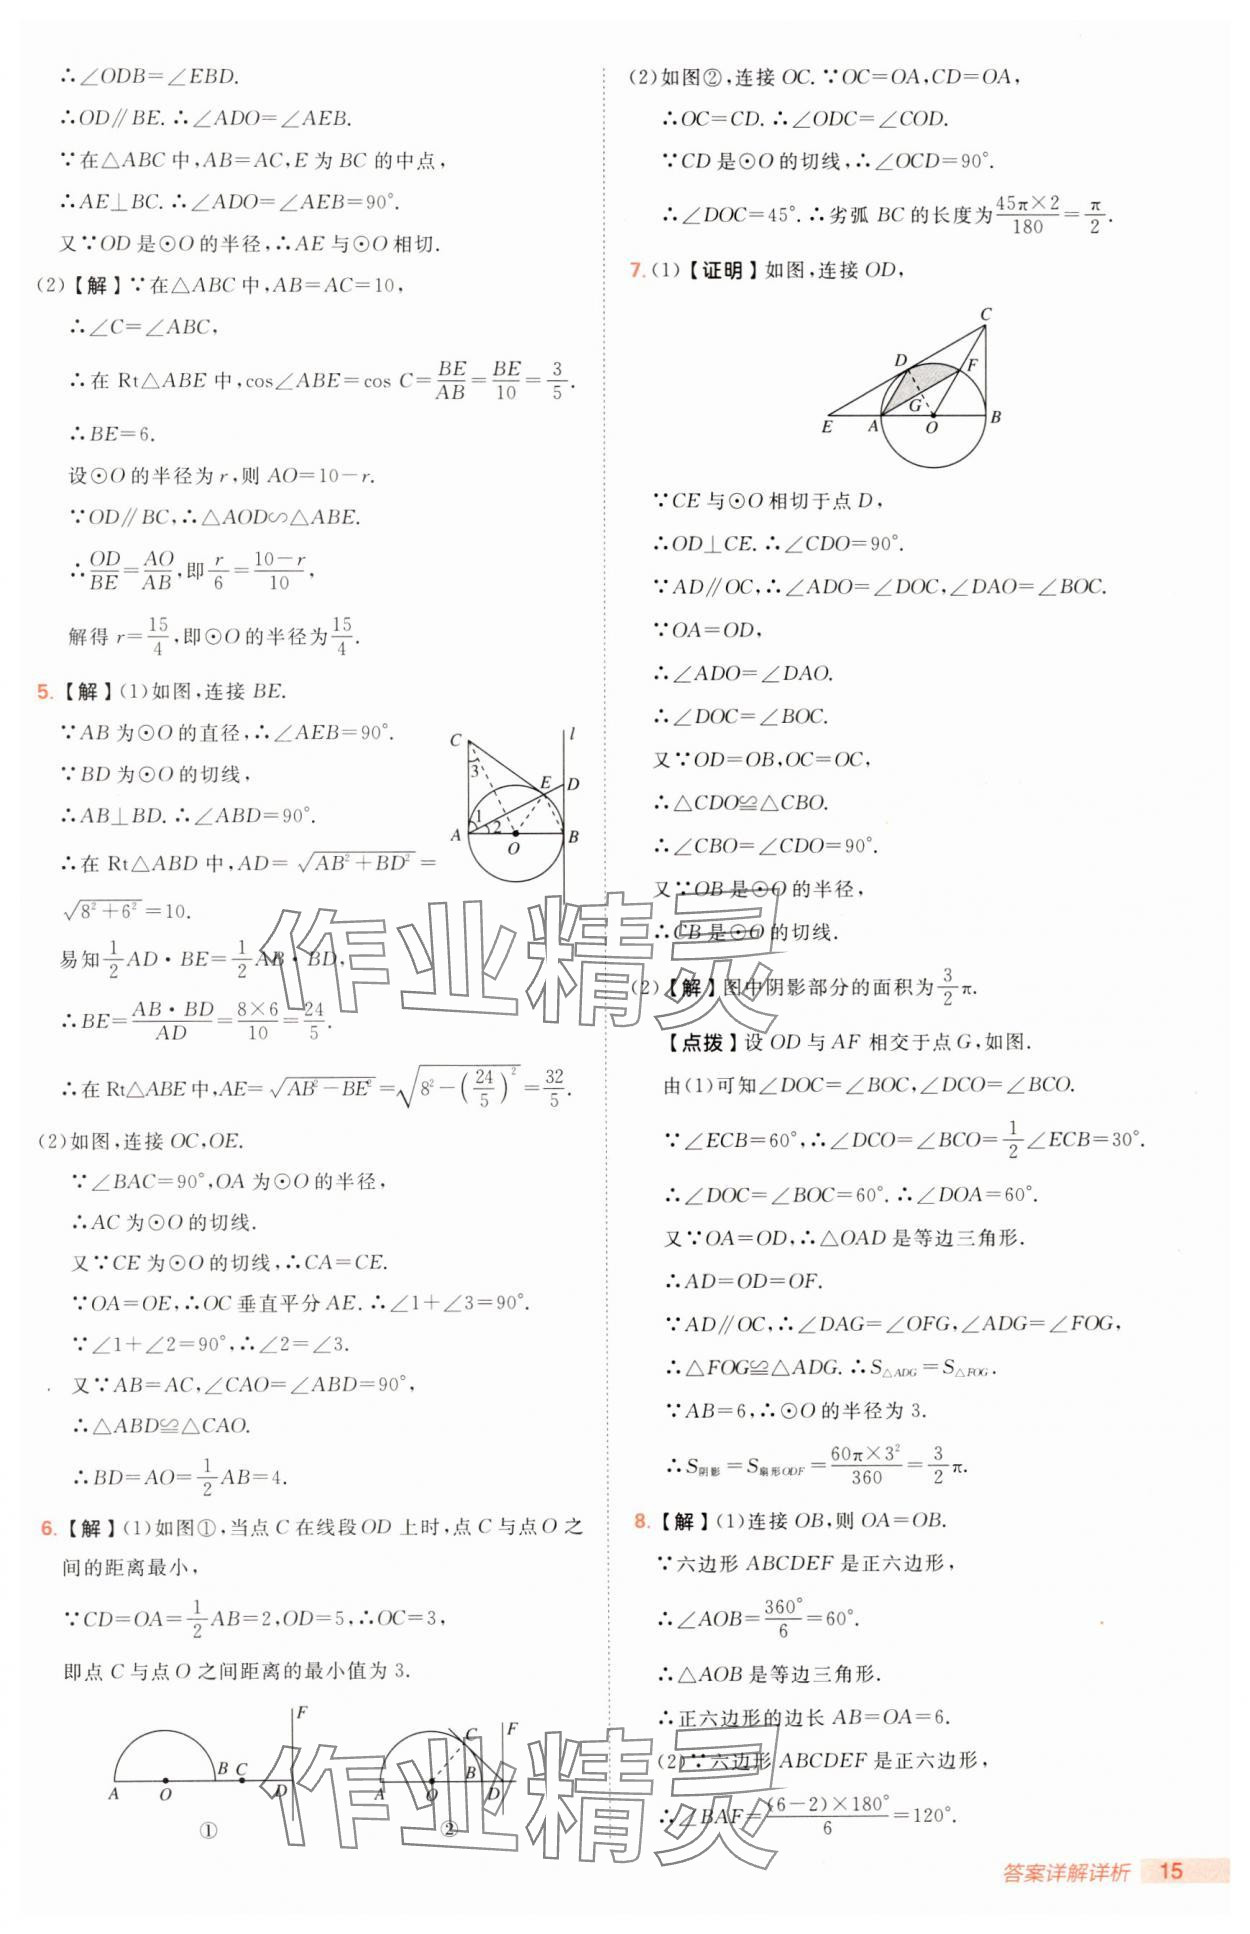 ∴∠ODB=∠EBD.
∴OD∥BE.∴∠ADO=∠AEB.
∵在△ABC中,AB=AC,E为BC的中点,
∴AE⊥BC.∴∠ADO=∠AEB=90°.
又∵OD是⊙O的半径,∴AE与⊙O相切.
(2)【解】∵在△ABC中,AB=AC=10,
∴∠C=∠ABC,
∴在Rt△ABE中,cos∠ABE=cos C=BE/AB=BE/10=3/5.
∴BE=6.
设⊙O的半径为r,则AO=10-r.
∵OD∥BC,∴△AOD∽△ABE.
∴OD/BE=AO/AB,即r/6=(10-r)/10,
解得r=15/4,即⊙O的半径为15/4.
5.【解】(1)如图,连接BE.
∵AB为⊙O的直径,∴∠AEB=90°.
∵BD为⊙O的切线,
∴AB⊥BD.∴∠ABD=90°.
∴在Rt△ABD中,AD=√(AB²+BD²)=
√(8²+6²)=10.
易知1/2AD·BE=1/2AB·BD,
∴BE=AB·BD/AD=8×6/10=24/5.
∴在Rt△ABE中,AE=√(AB²-BE²)=√(8²-(24/5)²)=32/5.
C
3
E
l
D
A
1
2
O
B
(2)如图,连接OC,OE.
∵∠BAC=90°,OA为⊙O的半径,
∴AC为⊙O的切线.
又∵CE为⊙O的切线,∴CA=CE.
∵OA=OE,∴OC垂直平分AE.∴∠1+∠3=90°.
∵∠1+∠2=90°,∴∠2=∠3.
又∵AB=AC,∠CAO=∠ABD=90°,
∴△ABD≌△CAO.
∴BD=AO=1/2AB=4.
6.【解】(1)如图①,当点C在线段OD上时,点C与点O之
间的距离最小,
∵CD=OA=1/2AB=2,OD=5,∴OC=3,
即点C与点O之间距离的最小值为3.
F
A
O
B
C
D
①
F
C
A
O
B
D
②
(2)如图②,连接OC.∵OC=OA,CD=OA,
∴OC=CD.∴∠ODC=∠COD.
∵CD是⊙O的切线,∴∠OCD=90°.
∴∠DOC=45°.∴劣弧BC的长度为45π×2/180=π/2.
7.(1)【证明】如图,连接OD,
C
D
F
G
E
A
O
B
∵CE与⊙O相切于点D,
∴OD⊥CE.∴∠CDO=90°.
∵AD∥OC,∴∠ADO=∠DOC,∠DAO=∠BOC.
∵OA=OD,
∴∠ADO=∠DAO.
∴∠DOC=∠BOC.
又∵OD=OB,OC=OC,
∴△CDO≌△CBO.
∴∠CBO=∠CDO=90°.
又∵OB是⊙O的半径,
∴CB是⊙O的切线.
(2)【解】图中阴影部分的面积为3/2π.
【点拨】设OD与AF相交于点G,如图.
由(1)可知∠DOC=∠BOC,∠DCO=∠BCO.
∵∠ECB=60°,∴∠DCO=∠BCO=1/2∠ECB=30°.
∴∠DOC=∠BOC=60°.∴∠DOA=60°.
又∵OA=OD,∴△OAD是等边三角形.
∴AD=OD=OF.
∵AD∥OC,∴∠DAG=∠OFG,∠ADG=∠FOG,
∴△FOG≌△ADG.∴S△ADG=S△FOG.
∵AB=6,∴⊙O的半径为3.
∴S阴影=S扇形ODF=60π×3²/360=3/2π.
8.【解】(1)连接OB,则OA=OB.
∵六边形ABCDEF是正六边形,
∴∠AOB=360°/6=60°.
∴△AOB是等边三角形.
∴正六边形的边长AB=OA=6.
(2)∵六边形ABCDEF是正六边形,
∴∠BAF=(6-2)×180°/6=120°.
作业精灵
作业精灵
答案详解详析 15